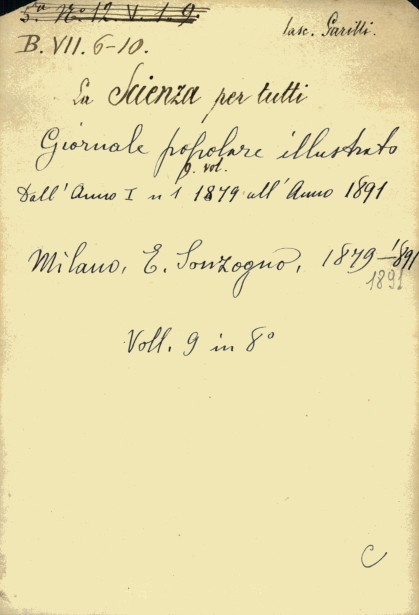 5ª Nº 12. V. 1. 9.
B. VII. 6-10.
lasc. Garilli.
La Scienza per tutti
Giornale popolare illustrato
9. vol.
Dall'Anno I n 1 1879 all'Anno 1891
Milano, E. Sonzogno, 1879-1891
1891
Voll. 9 in 8º
C